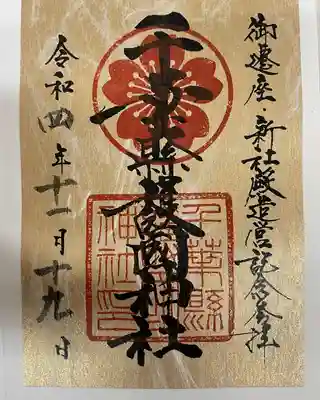 御遷座・新社殿造営記念参拝
千葉縣護國神社
千葉縣
神社印
令和四年十一月十九日